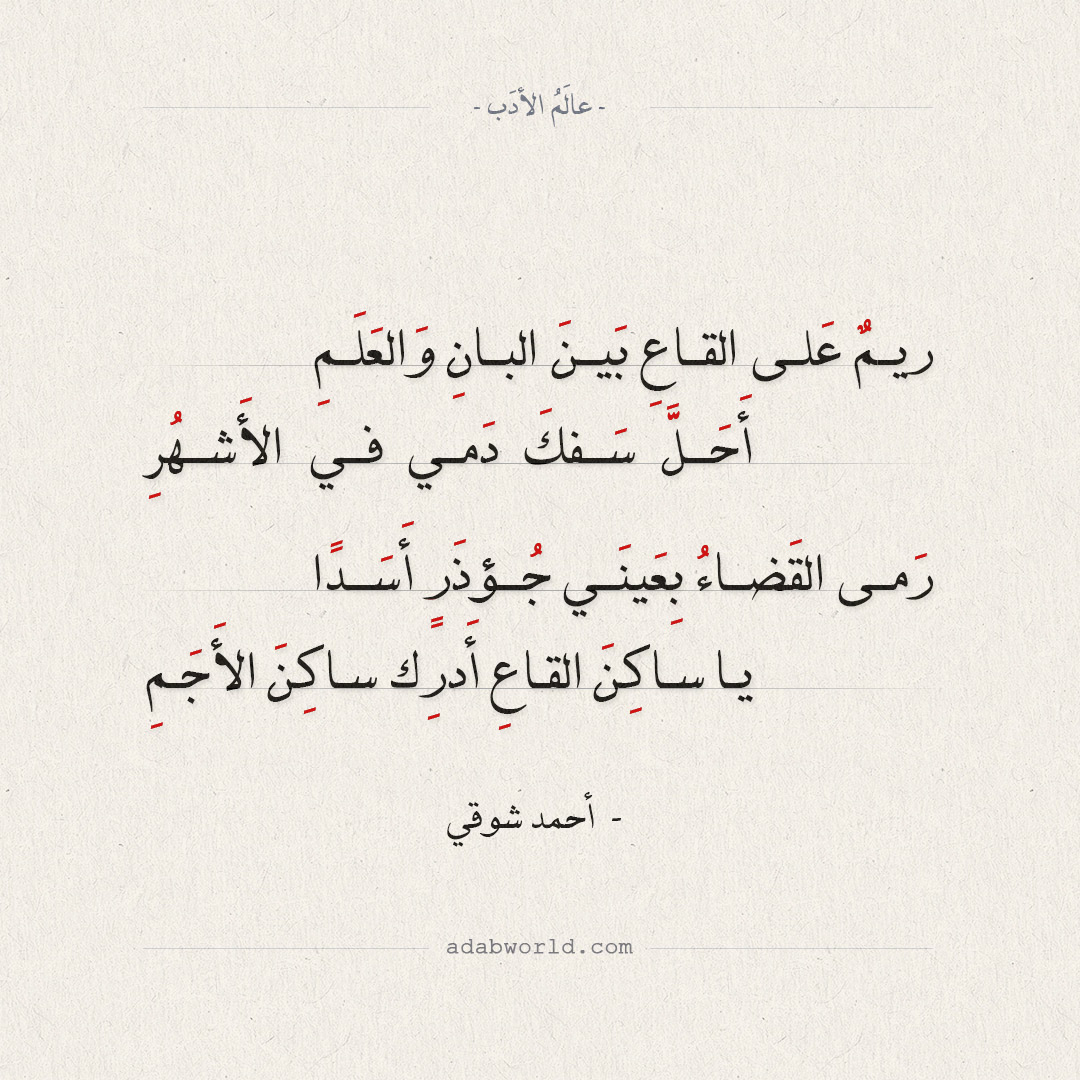 - عالَمُ الأدَب -
ريـمٌ عَلـى القـاعِ بَيـنَ البـانِ وَالعَلَـمِ
أَحَـلَّ سَـفكَ دَمـي فـي الأَشـهُرِ
رَمـى القَضـاءُ بِعَينَـي جُـؤذَرٍ أَسَـدًا
يـا سـاكِنَ القـاعِ أَدرِك سـاكِنَ الأَجَـمِ
- أحمد شوقي
adabworld.com